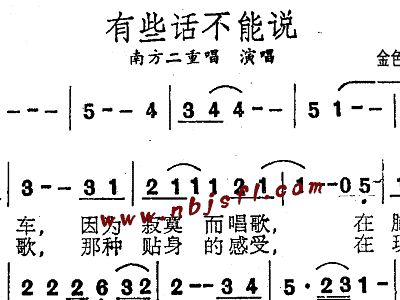 有些话不能说
南方二重唱 演唱
金色
- - - | 5 - - 4 | 3 4 4 - - | 5 1 - -
3 - - 3 1 | 2 1 1 1 2 1 | 1 - - 0 5
www.nbjsfl.com
车, 因为 寂寞 而唱歌, 在
歌, 那种 贴身 的感受, 在
2 2 2 6 3 2 | 2 - - 3 4 | 5 · 2 3 1 -